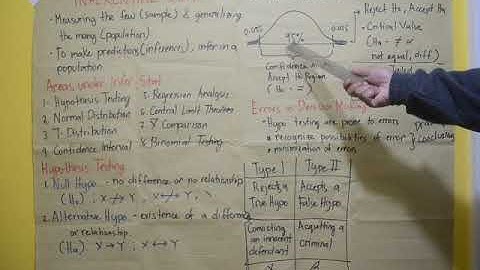 • Measuring the few (sample) & generalizing
the many (population)
• To make predictors (inference), infer in a
population
Areas under Infer Stat
1. Hypothesis Testing
2. Normal Distribution
3. T- Distribution
4. Confidence Interval
5. Regression Analysis
6. Central Limit Theorem
7. X̄ Comparison
8. Binomial Testing
Hypothesis Testing
1. Null Hypo. - no difference or no relationship
(H₀) ; X ↛ Y ; X ↮ Y
2. Alternative Hypo. - existence of a difference
or relationship
(Ha) X → Y ; X ↔ Y
0.025
95%
0.025
Confidence
Accept Ho Region
(Ho = )
Reject Ho, Accept Ha
• Critical Value
(Ha = ≠ or
not equal, diff)
Errors in Decision
• Hypo testing are prone to errors
• recognize possibilities of error
• minimization of error
conclusion
Type I
Type II
Rejects a
True Hypo
Accepts a
False Hypo
Convicting
an innocent
defendant
Acquitting a
criminal